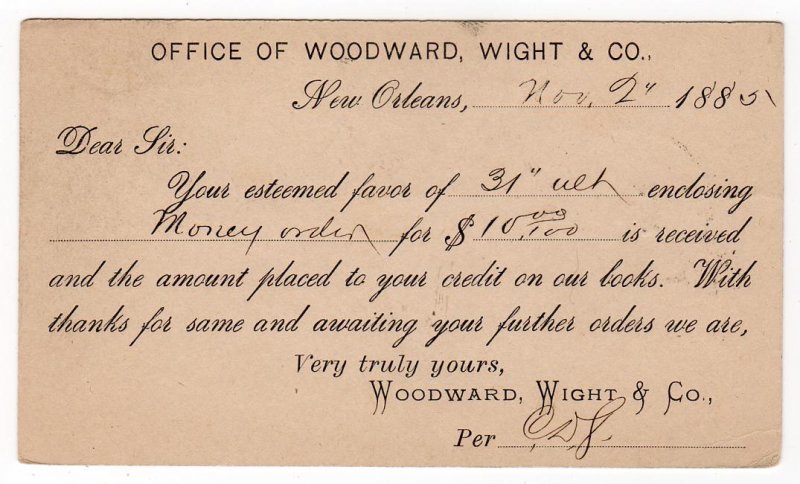 OFFICE OF WOODWARD, WIGHT & CO.,
New Orleans, Nov. 2" 1885
Dear Sir:
Your esteemed favor of 31" ult enclosing
Money order for $ 10 00/100 is received
and the amount placed to your credit on our books. With
thanks for same and awaiting your further orders we are,
Very truly yours,
WOODWARD, WIGHT & CO.,
Per